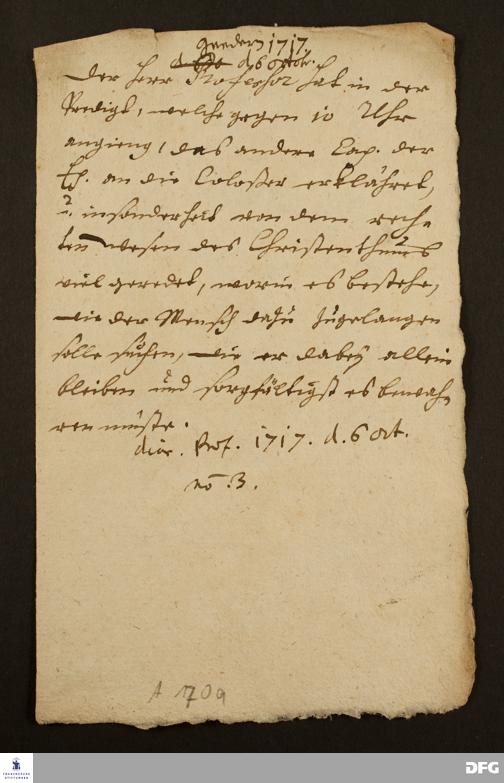 Gandern 1717.
d. 6 octobr.
Der Herr Professor hat in der
Predigt, welche gegen 10 Uhr
angieng, das andere Cap. der
Ep. an die Colosser erklähret,
u. insonderheit von dem rech-
ten wesen des Christenthums
viel geredet, worin es bestehe,
wie der Mensch dazu zugelangen
solle suchen, wie er dabey allein
bleiben und sorgfältigst es bewah-
ren müste.
diar. Prof. 1717. d. 6 oct.
no. 3.
A 170a
FRANCKESCHE
STIFTUNGEN
DFG